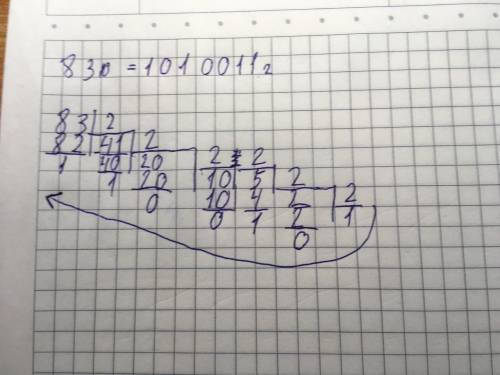 83₁₀ = 1010011₂
83 2
82 41 2 2 2
1 40 20 10 5 2
1 20 10 4 2 2
0 0 1 2 1
0